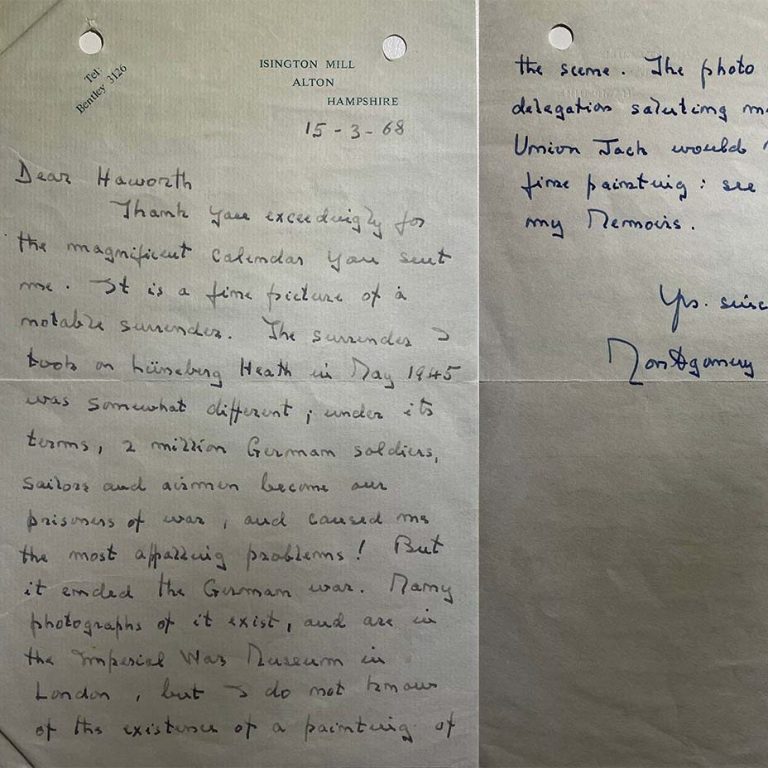 Tel:
Bentley 3126
ISINGTON MILL
ALTON
HAMPSHIRE
15-3-68
Dear Haworth
Thank you exceedingly for
the magnificent calendar you sent
me. It is a fine picture of a
notable surrender. The surrender I
took on Lüneberg Heath in May 1945
was somewhat different; under its
terms, 2 million German soldiers,
sailors and airmen became our
prisoners of war, and caused me
the most appalling problems! But
it ended the German war. Many
photographs of it exist, and are in
the Imperial War Museum in
London, but I do not know
of the existence of a painting of
the scene. The photo
delegation saluting
Union Jack would
fine painting: see
my Memoirs.
Yrs. since
Montgomery